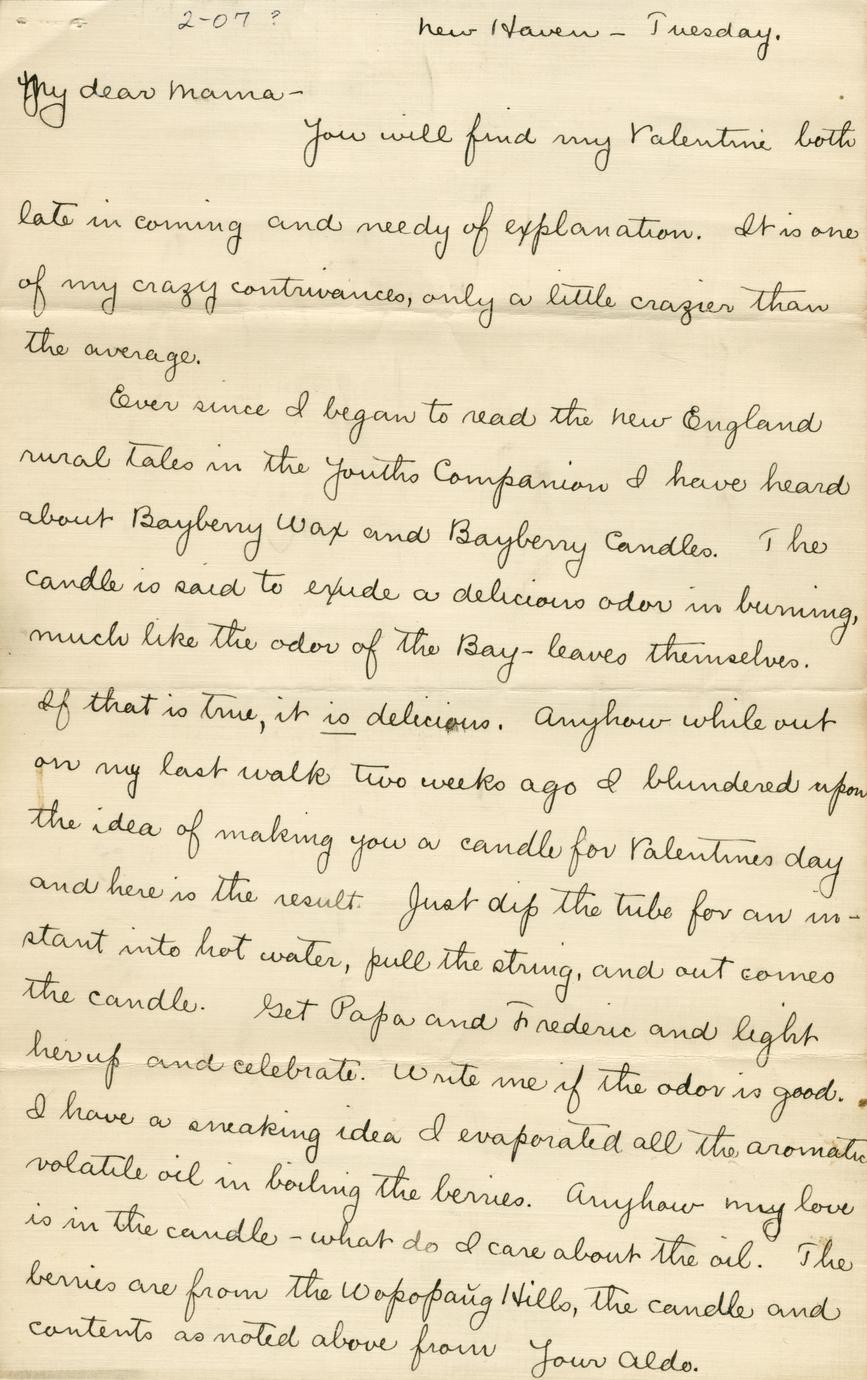 2-07 ?
New Haven - Tuesday.
My dear Mama -
You will find my Valentine both
late in coming and needy of explanation. It is one
of my crazy contrivances, only a little crazier than
the average.
Ever since I began to read the New England
rural tales in the Youths Companion I have heard
about Bayberry Wax and Bayberry Candles. The
candle is said to exude a delicious odor in burning,
much like the odor of the Bay-leaves themselves.
If that is true, it is delicious. Anyhow while out
on my last walk two weeks ago I blundered upon
the idea of making you a candle for Valentines day
and here is the result. Just dip the tube for an in-
stant into hot water, pull the string, and out comes
the candle. Get Papa and Frederic and light
her up and celebrate. Write me if the odor is good.
I have a sneaking idea I evaporated all the aromatic
volatile oil in boiling the berries. Anyhow my love
is in the candle - what do I care about the oil. The
berries are from the Wopopaŭg Hills, the candle and
contents as noted above from Your Aldo.